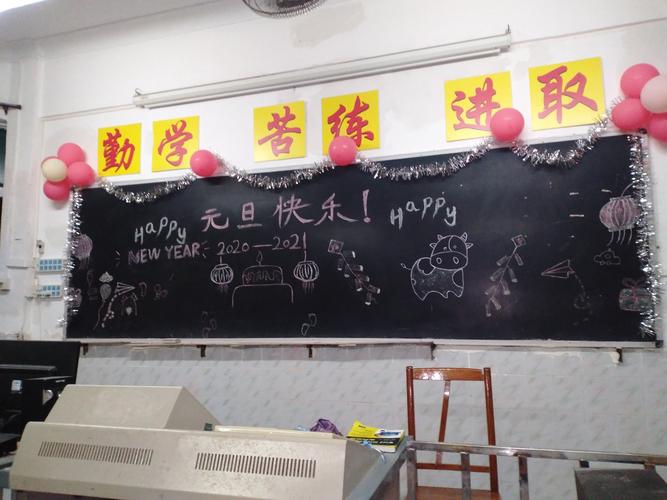 勤学 苦练 进取
HAPPY 元旦快乐! HAPPY
NEW YEAR: 2020—2021